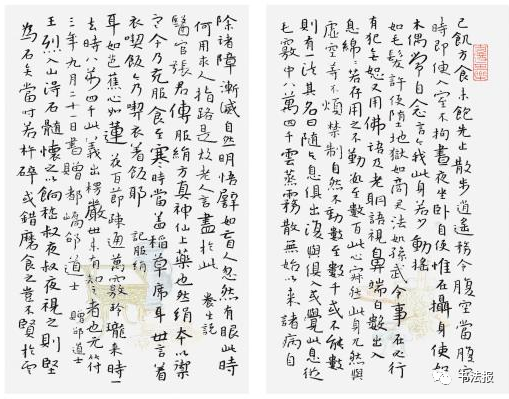 已飢方食未飽先止散步逍遥務令腹空當腹空
時即便入室不拘晝夜坐卧自便惟在攝身使如
木偶常自念言今我此身若少動摇
如毛髮許便墮地獄如商君法如孫武令事在必行
有犯無恕又用佛語及老聃語視鼻端白數出入
息綿綿若存用之不勤數至數百此心寂然此身兀然與
虚空等不煩禁制自然不動數至數千或不能數
則有一法其名曰隨與息俱出復與俱入或覺此息從
毛竅中八萬四千雲蒸霧散無始以來諸病自
除諸障漸滅自然明悟譬如盲人忽然有眼此時
何用求人指路是故老人言盡於此 養生説
醫官張君傳服絹方真神仙上藥也然絹本以禦
寒今乃充服食至寒時當蓋稻草席耳世言着
衣喫飯今乃喫衣着飯耶 記服絹
耳如芭蕉心如蓮花百節疎通萬竅玲瓏來時一
去時八萬四千此義出楞嚴世未有知之者也元符
三年九月二十一日書贈都嶠邵道士 贈邵道士
王烈入山得石髓懷之以餉嵇叔夜叔夜視之則堅
為石矣當時若杵碎或錯磨食之豈不賢於雲
书法报